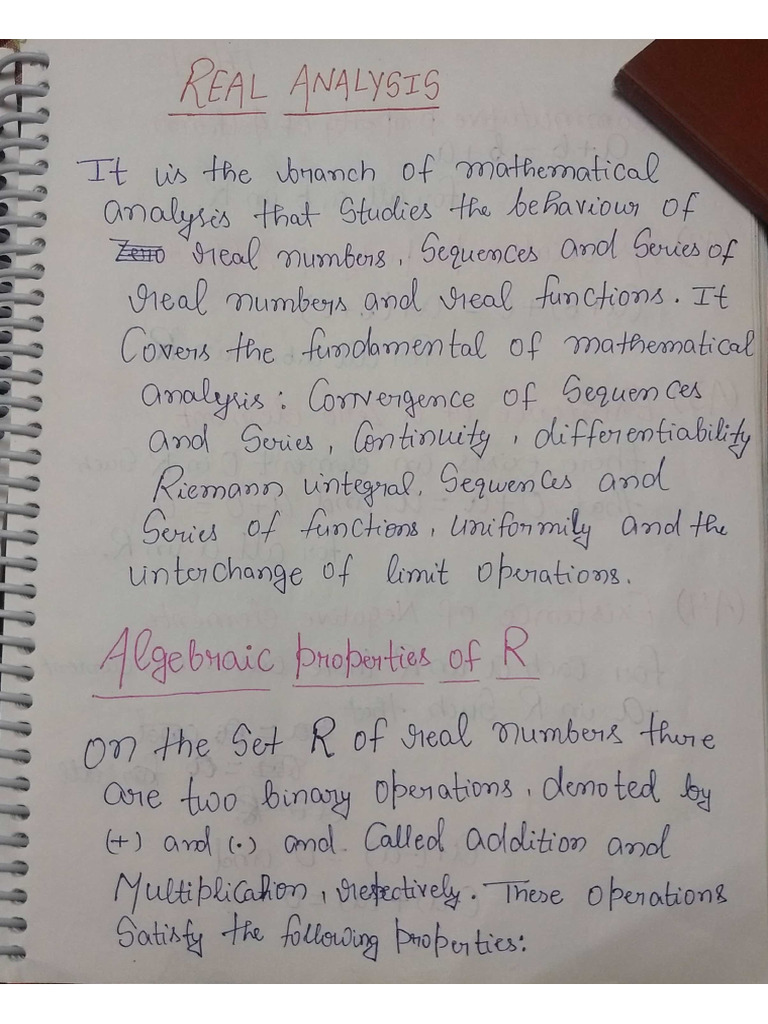 REAL ANALYSIS
It is the branch of mathematical
analysis that Studies the behaviour of
Zero real numbers, Sequences and Series of
real numbers and real functions. It
Covers the fundamental of mathematical
analysis: Convergence of Sequences
and Series, Continuity, differentiability
Riemann integral, Sequences and
Series of functions, uniformily and the
interchange of limit operations.
Algebraic properties of R
On the Set R of real numbers there
are two binary operations, denoted by
(+) and (·) and Called addition and
Multiplication, respectively. These operations
Satisfy the following properties: